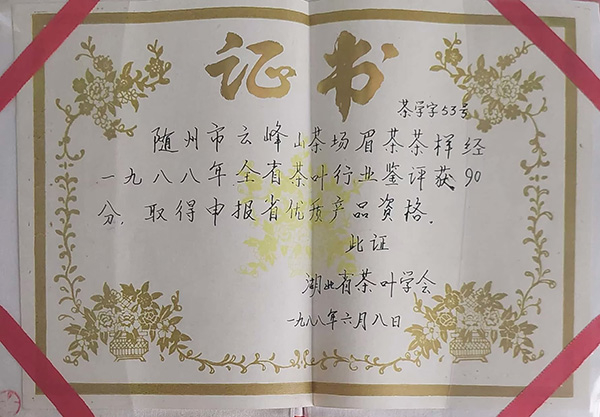 证书
茶学字53号
随州市云峰山茶场眉茶茶样经
一九八八年全省茶叶行业鉴评获90
分，取得申报省优质产品资格.
此证
湖北省茶叶学会
一九八八年六月八日